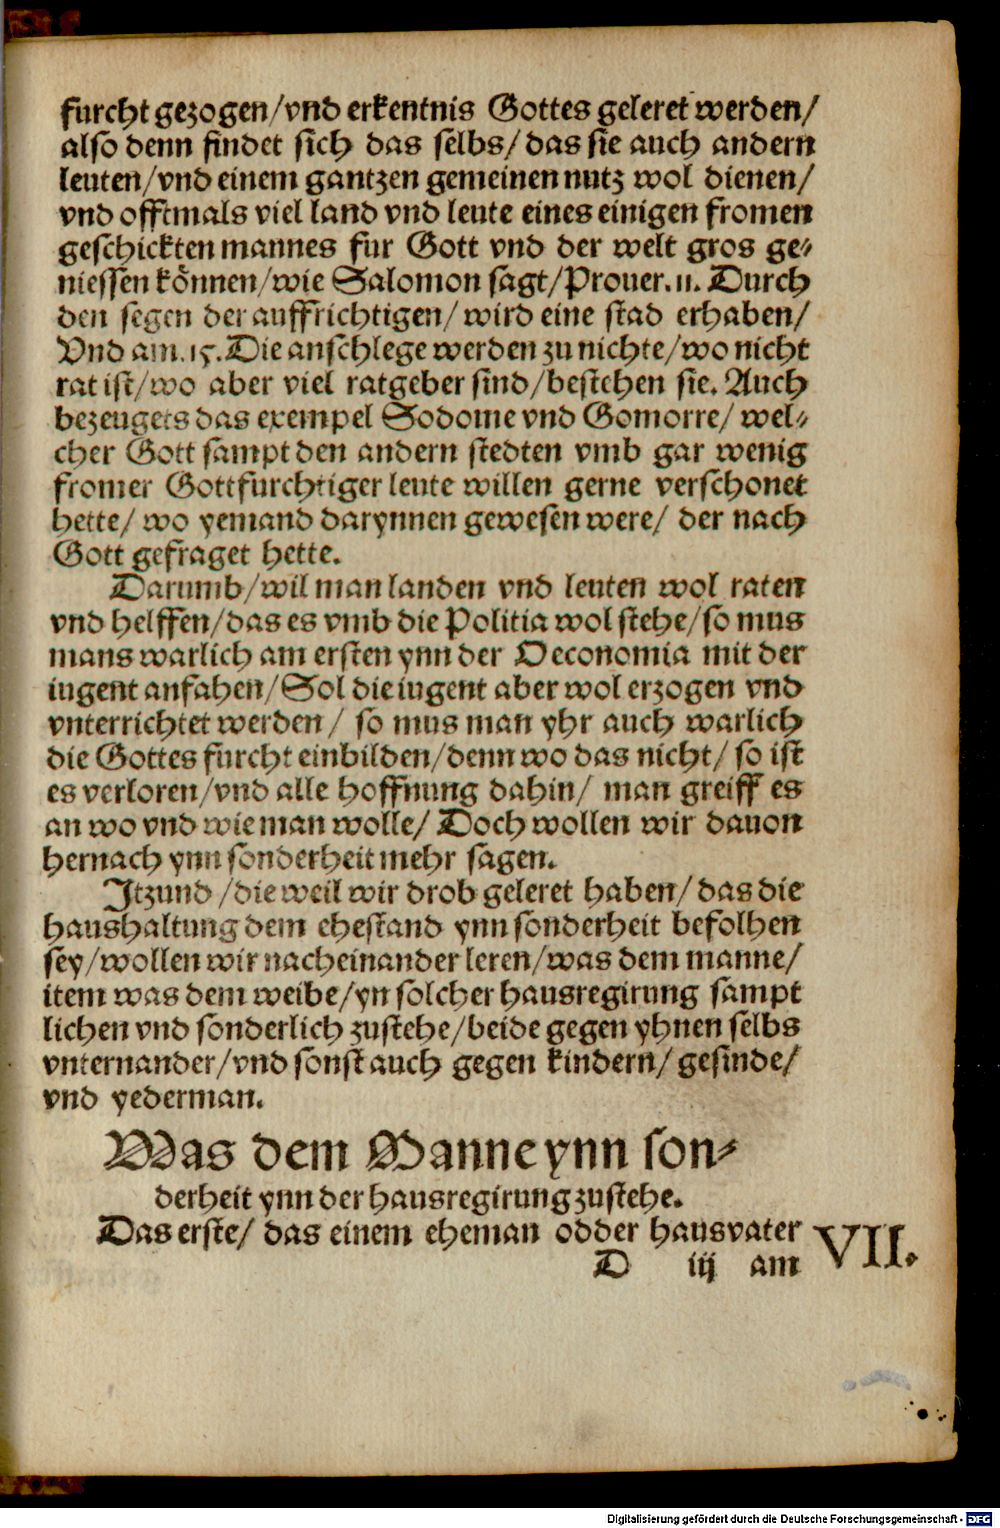 furcht gezogen/vnd erkentnis Gottes geleret werden/
also denn findet sich das selbs/das sie auch andern
leuten/vnd einem gantzen gemeinen nutz wol dienen/
vnd offtmals viel land vnd leute eines einigen fromen
geschickten mannes fur Gott vnd der welt gros ge-
niessen können/wie Salomon sagt/Prouer.11. Durch
den segen der auffrichtigen/wird eine stad erhaben/
Vnd am.15.Die anschlege werden zu nichte/wo nicht
rat ist/wo aber viel ratgeber sind/bestehen sie. Auch
bezeugets das exempel Sodome vnd Gomorre/ wel-
cher Gott sampt den andern stedten vmb gar wenig
fromer Gottfurchtiger leute willen gerne verschonet
hette/ wo yemand darynnen gewesen were/ der nach
Gott gefraget hette.
Darumb/wil man landen vnd leuten wol raten
vnd helffen/das es vmb die Politia wol stehe/so mus
mans warlich am ersten ynn der Oeconomia mit der
iugent anfahen/Sol die iugent aber wol erzogen vnd
vnterrichtet werden/ so mus man yhr auch warlich
die Gottes furcht einbilden/denn wo das nicht/so ist
es verloren/vnd alle hoffnung dahin/ man greiff es
an wo vnd wie man wolle/ Doch wollen wir dauon
hernach ynn sonderheit mehr sagen.
Itzund/die weil wir drob geleret haben/das die
haushaltung dem ehestand ynn sonderheit befolhen
sey/wollen wir nacheinander leren/was dem manne/
item was dem weibe/yn solcher hausregirung sampt
lichen vnd sonderlich zustehe/beide gegen yhnen selbs
vnternander/vnd sonst auch gegen kindern/gesinde/
vnd yederman.
Was dem Manne ynn son-
derheit ynn der hausregirung zustehe.
Das erste/ das einem eheman odder hausvater
VII.
D iij am
Digitalisierung gefördert durch die Deutsche Forschungsgemeinschaft - DFG